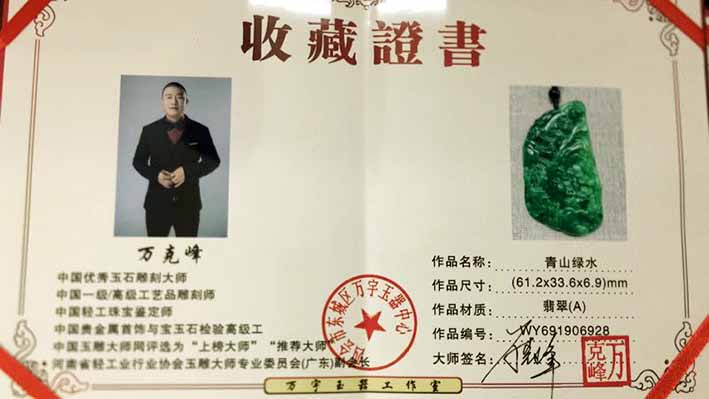 收藏證書
万克峰
中国优秀玉石雕刻大师
中国一级/高级工艺品雕刻师
中国轻工珠宝鉴定师
中国贵金属首饰与宝玉石检验高级工
中国玉雕大师网评选为“上榜大师”“推荐大师”
河南省轻工业行业协会玉雕大师专业委员会(广东)副会长
会市东城区万宇玉器中心
作品名称: 青山绿水
作品尺寸: (61.2x33.6x6.9)mm
作品材质: 翡翠(A)
作品编号: WY691906928
大师签名:
万克峰
万宇玉器工作室